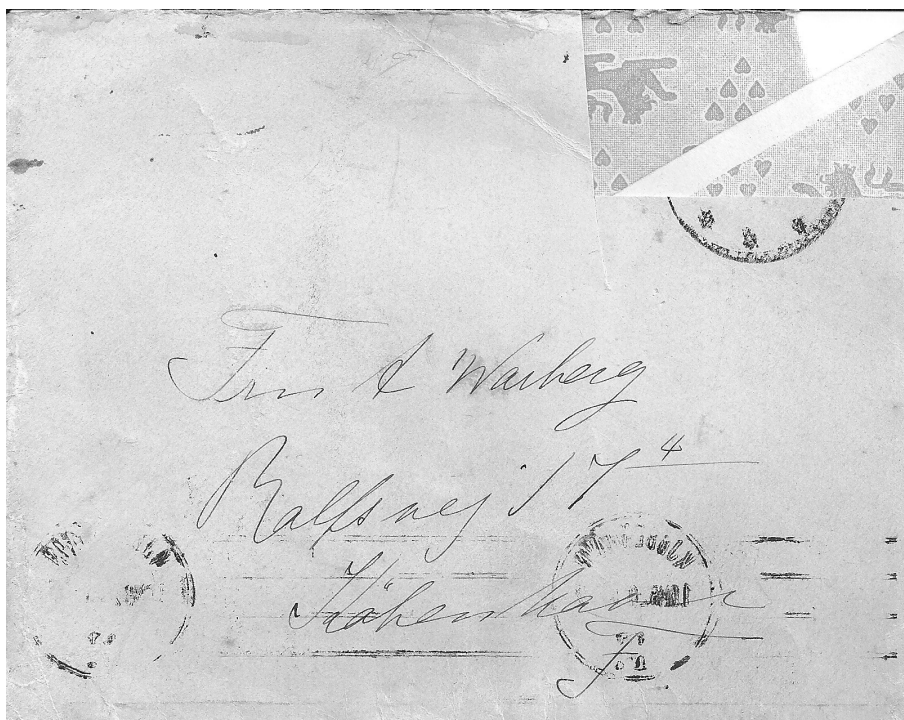 Fru A Warberg
Rolfsvej 17 4
Köbenhavn
F